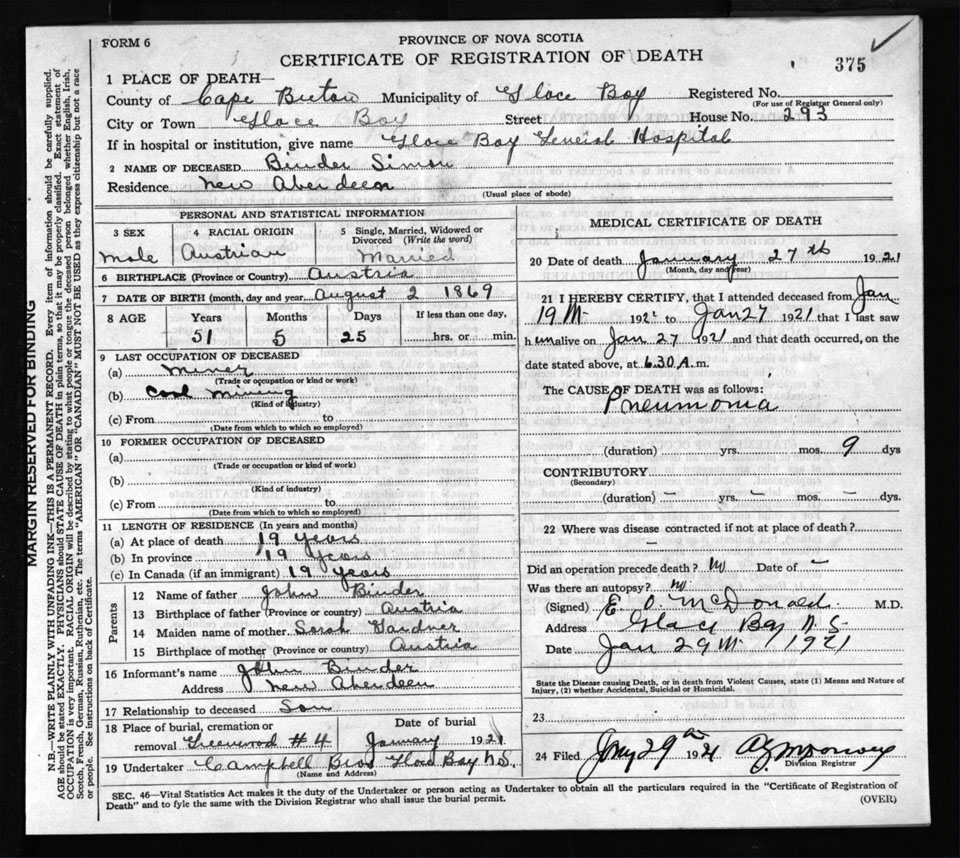 FORM 6
PROVINCE OF NOVA SCOTIA
CERTIFICATE OF REGISTRATION OF DEATH
375
1 PLACE OF DEATH—
County of Cape Breton Municipality of Glace Bay Registered No.
(For use of Registrar General only)
City or Town Glace Bay Street House No. 293
If in hospital or institution, give name Glace Bay General Hospital
2 NAME OF DECEASED Binder Simon
Residence New Aberdeen
(Usual place of abode)
PERSONAL AND STATISTICAL INFORMATION
3 SEX
male
4 RACIAL ORIGIN
Austrian
5 Single, Married, Widowed or Divorced (Write the word)
Married
6 BIRTHPLACE (Province or Country) Austria
7 DATE OF BIRTH (month, day and year) August 2 1869
8 AGE Years Months Days If less than one day,
51 5 25 hrs. or min.
9 LAST OCCUPATION OF DECEASED
(a) miner
(Trade or occupation or kind or work)
(b) coal mining
(Kind of industry)
(c) From to
(Date from which to which so employed)
10 FORMER OCCUPATION OF DECEASED
(a)
(Trade or occupation or kind of work)
(b)
(Kind of industry)
(c) From to
(Date from which to which so employed)
11 LENGTH OF RESIDENCE (In years and months)
(a) At place of death 19 years
(b) In province 19 years
(c) In Canada (if an immigrant) 19 years
Parents
12 Name of father John Binder
13 Birthplace of father (Province or country) Austria
14 Maiden name of mother Sarah Gardner
15 Birthplace of mother (Province or country) Austria
16 Informant's name John Binder
Address New Aberdeen
17 Relationship to deceased Son
18 Place of burial, cremation or removal Greenwood #4
Date of burial
January 1921
19 Undertaker Campbell Bros Glace Bay N.S.
(Name and Address)
MEDICAL CERTIFICATE OF DEATH
20 Date of death January 27th 1921
(Month, day and year)
21 I HEREBY CERTIFY, that I attended deceased from Jan
19th 1921 to Jan 27 1921 that I last saw
him alive on Jan 27 1921 and that death occurred, on the
date stated above, at 6.30 A. m.
The CAUSE OF DEATH was as follows:
Pneumonia
(duration) yrs. mos. 9 dys
CONTRIBUTORY
(Secondary)
(duration) – yrs. – mos. – dys.
22 Where was disease contracted if not at place of death?
–
Did an operation precede death? No Date of –
Was there an autopsy? No
(Signed) E. O. McDonald M.D.
Address Glace Bay N.S.
Date Jan 29th 1921
State the Disease causing Death, or in death from Violent Causes, state (1) Means and Nature of
Injury, (2) whether Accidental, Suicidal or Homicidal.
23
24 Filed 29 1921
Division Registrar
SEC. 46—Vital Statistics Act makes it the duty of the Undertaker or person acting as Undertaker to obtain all the particulars required in the "Certificate of Registration of
Death" and to fyle the same with the Division Registrar who shall issue the burial permit.
(OVER)
MARGIN RESERVED FOR BINDING
N.B.—WRITE PLAINLY WITH UNFADING INK—THIS IS A PERMANENT RECORD. Every item of information should be carefully supplied.
AGE should be stated EXACTLY. PHYSICIANS should STATE CAUSE OF DEATH in plain terms, so that it may be properly classified. Exact statement of
OCCUPATION is very important. RACIAL ORIGIN will be described by stating to what people or tongue the deceased person belonged whether English, Irish,
Scotch, French, German, Russian, Ruthenian, etc. The terms "AMERICAN" OR "CANADIAN" MUST NOT BE USED as they express citizenship but not a race
or people. See instructions on back of Certificate.